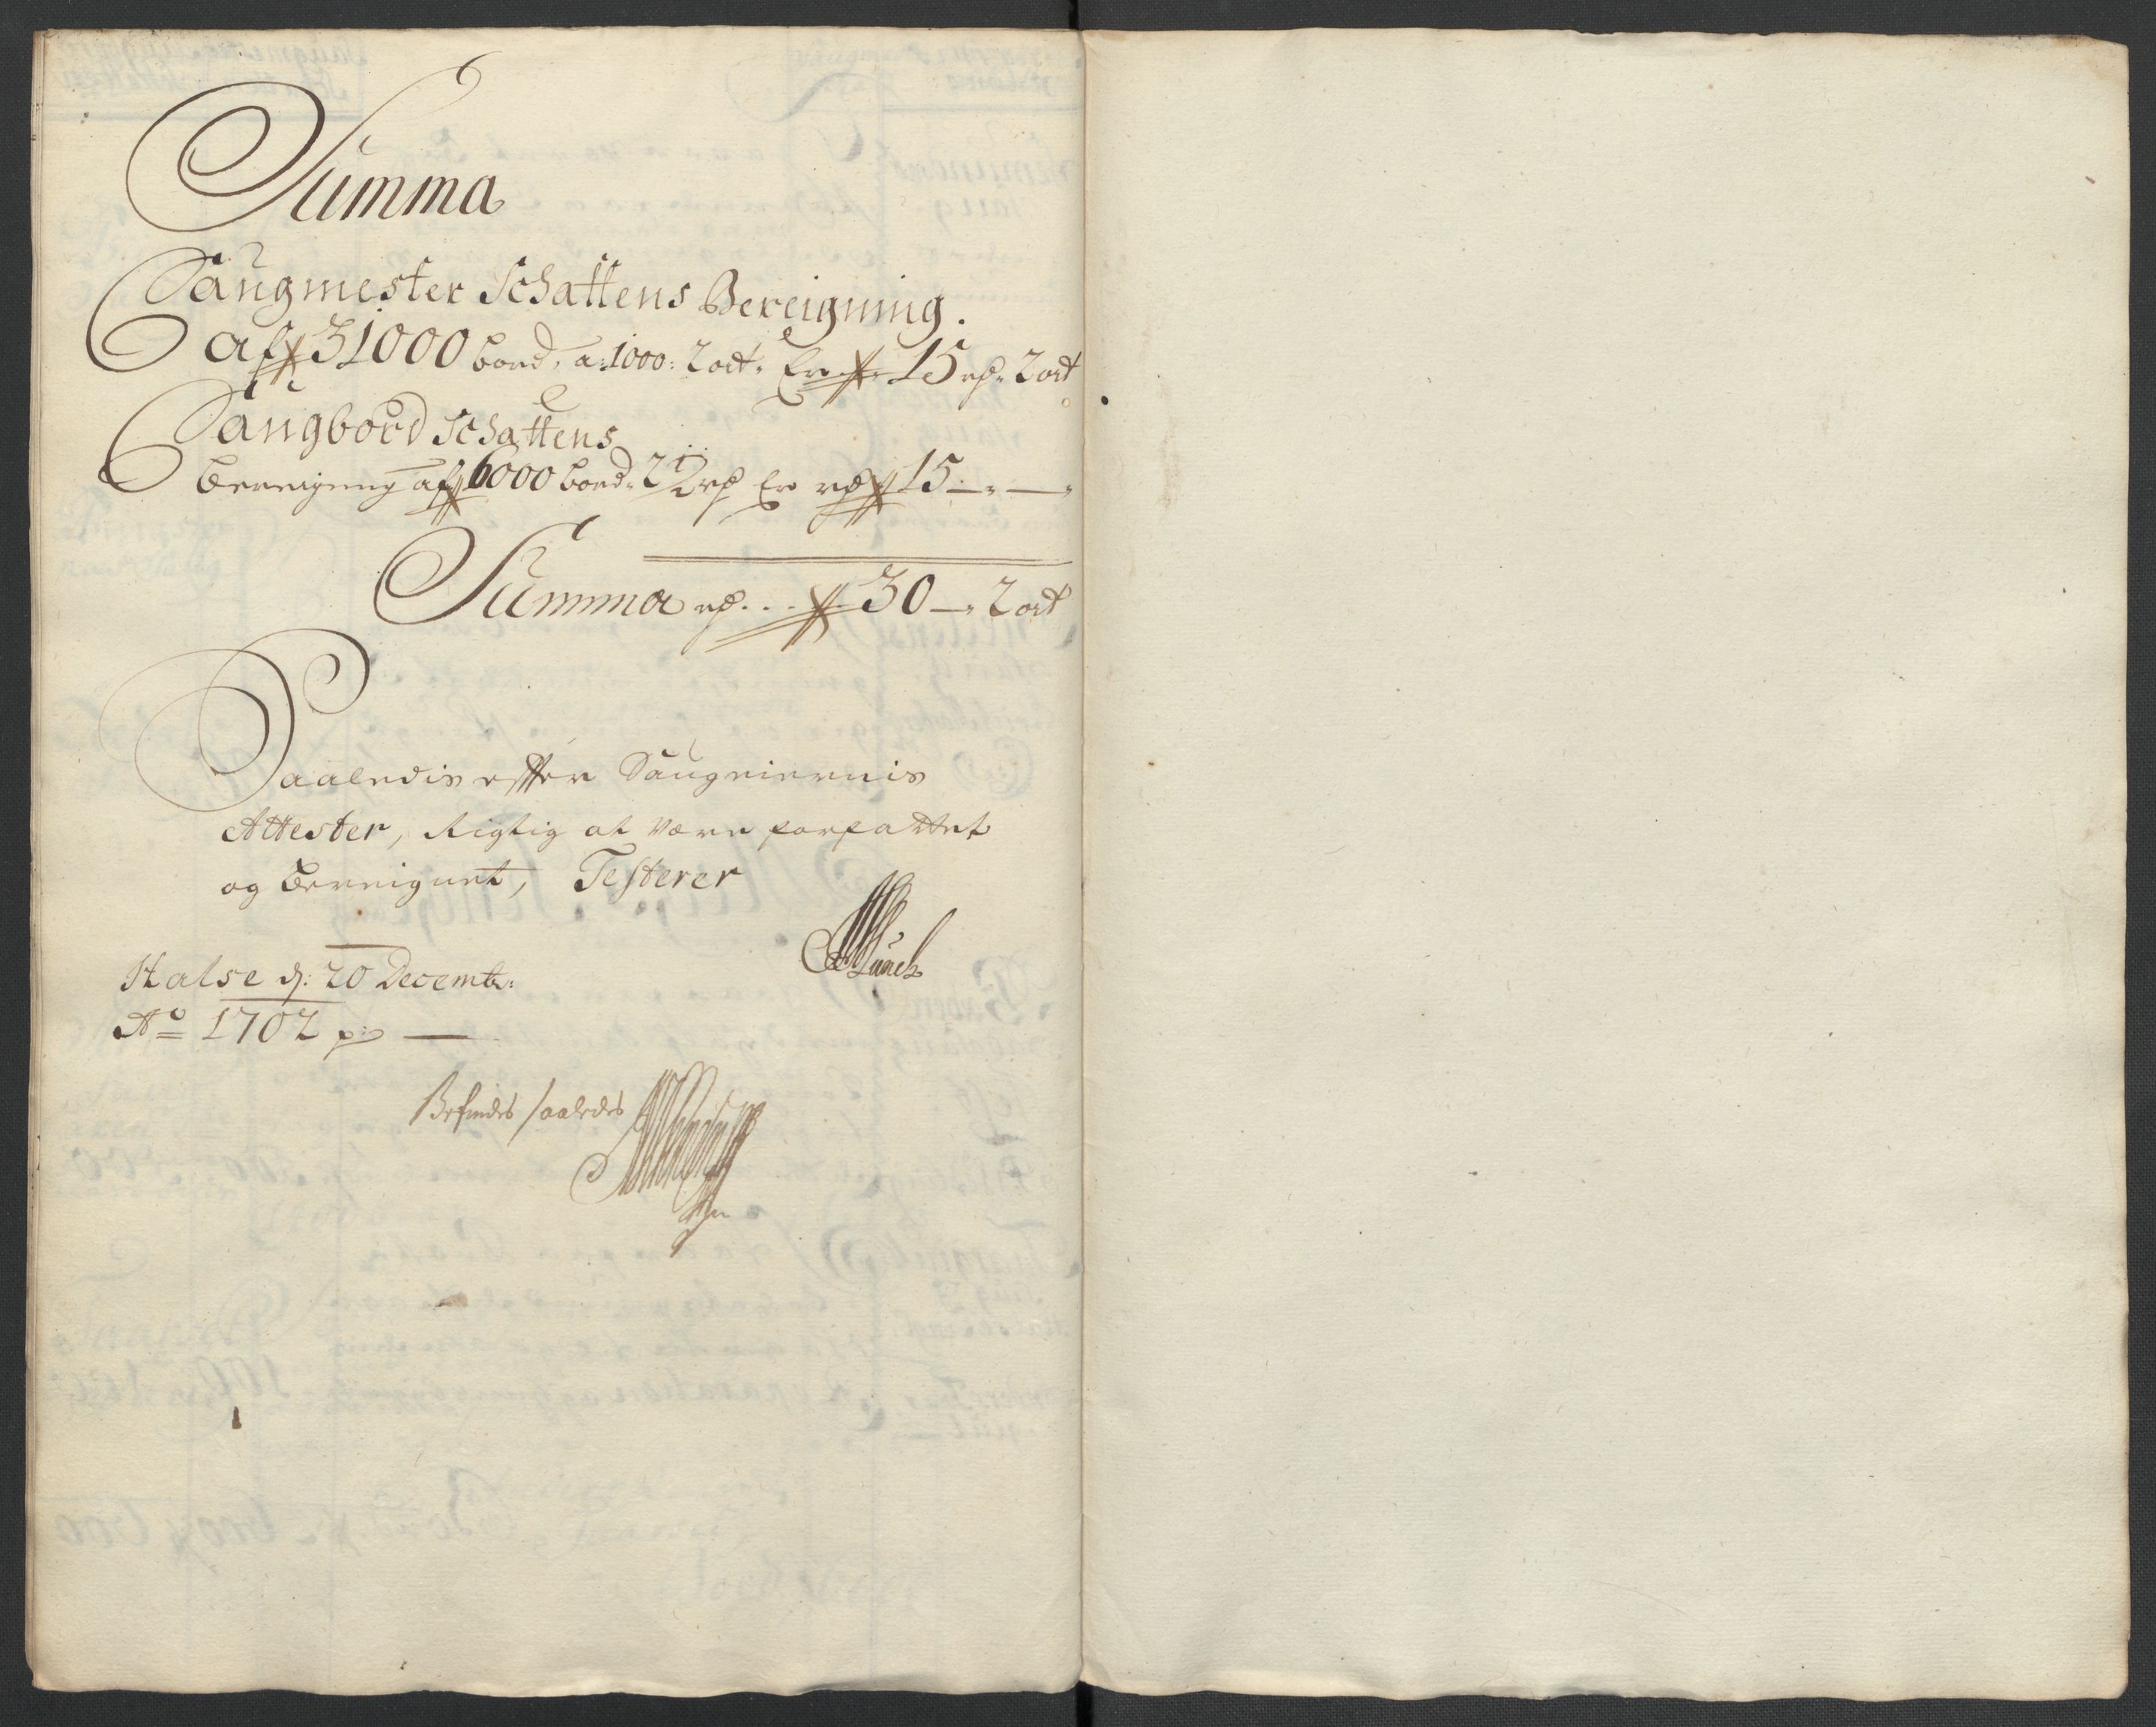 Summa
Saugmester Schattens Bereigning.
af 31000 bord, a: 1000: 2 ort. Er 15 rd. 2 ort
Saugbord Schattens
Bereigning af 6000 bord. 2½ rd Er rd 15 — —
Summa rd. . . 30 — 2 ort
Saaledis effter Saugeiernis
Attester, Rigtig at være forfattet
og bereignet, Testerer
Munch
Halse d: 20 Decembr:
Ao 1702 p:
Befindes saaledes